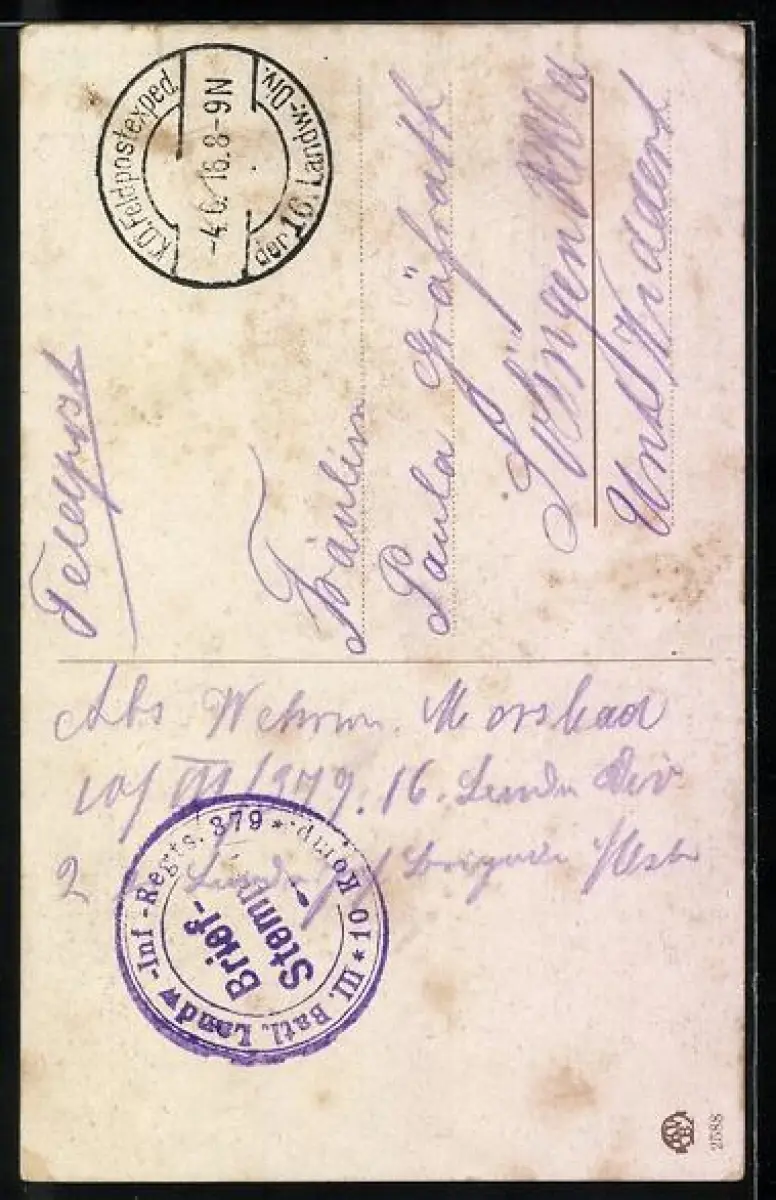 Feldpost
K.D. Feldpostexped. der 16. Landw.-Div.
-4.6.16. 8-9N
Fräulein
Paula Gräfrath
Solingen
Widdert
Abs Wehrm. Morsbach
10/III/379. 16. Landw Div
2 Landw Brigade
III. Batl. Landw.-Inf.-Regts. 379 * 10 Komp. *
Brief-
Stemp
2588